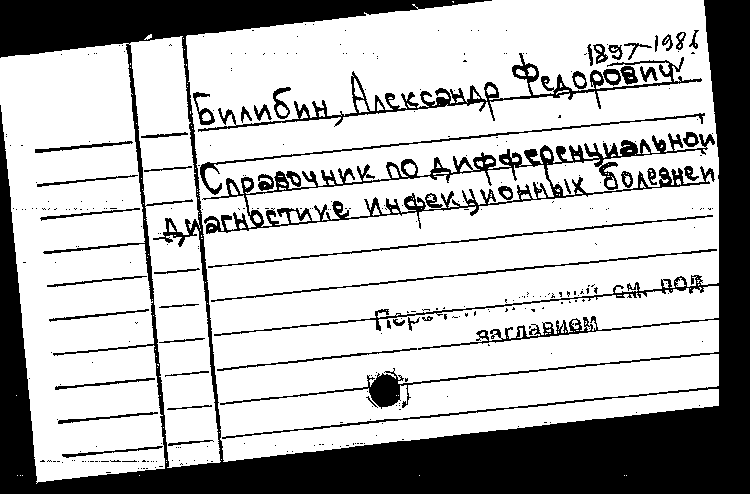 1897-1986
Билибин, Александр Федорович!
Справочник по дифференциальной
диагностике инфекционных болезней.
см. под
заглавием